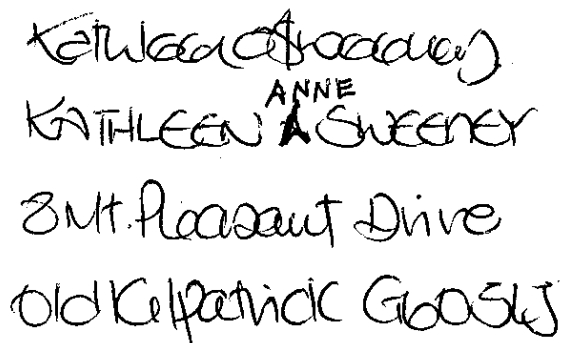 Kathleen A Sweeney
KATHLEEN ANNE SWEENEY
8 Mt. Pleasant Drive
Old Kilpatrick G60 5LJ